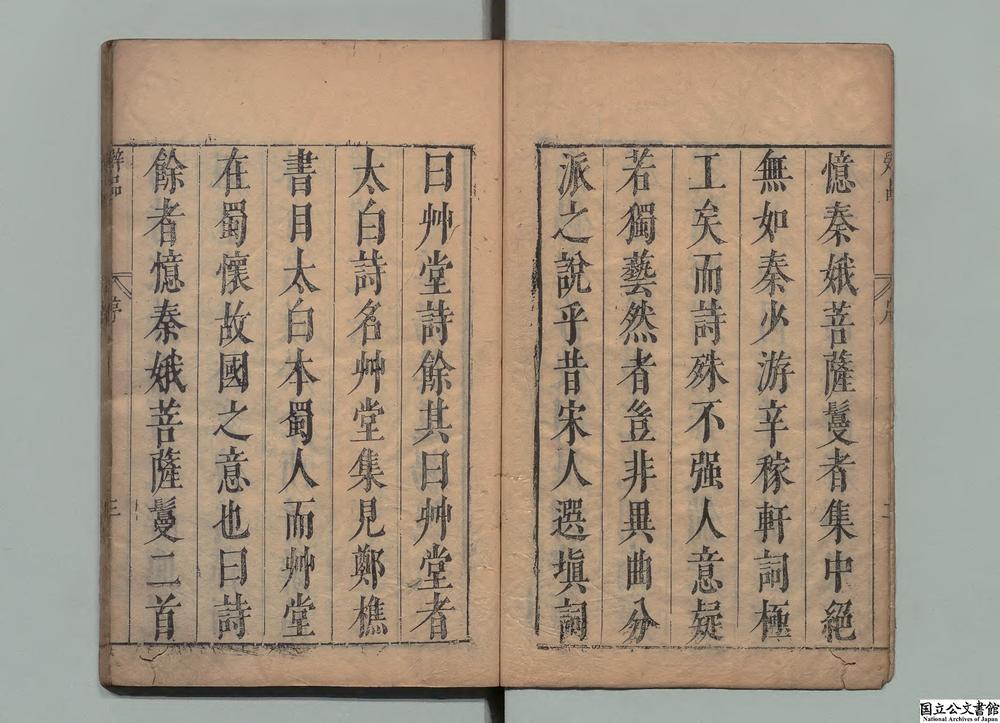 憶秦娥菩薩鬘者集中絕
無如秦少游辛稼軒詞極
工矣而詩殊不强人意疑
若獨藝然者豈非異曲分
派之說乎昔宋人選塡詞
曰艸堂詩餘其曰艸堂者
太白詩名艸堂集見鄭樵
書目太白本蜀人而艸堂
在蜀懷故國之意也曰詩
餘者憶秦娥菩薩鬘二首
序
三
国立公文書館
National Archives of Japan